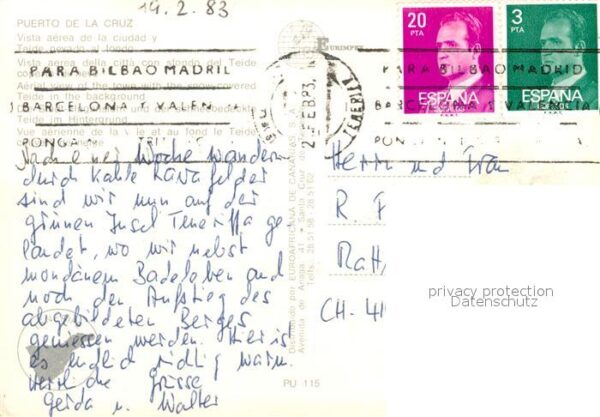 19.2.83
PUERTO DE LA CRUZ
Vista aérea de la ciudad y
Teide nevado al fondo
Vista aerea della città con sfondo del Teide
in the background
Teide im Hintergrund
Vue aérienne de la ville et au fond le Teide
EURIMPEX
PARA BILBAO MADRID
BARCELONA Y VALEN
PONGA
FEB 83
TENERIFE
20
PTA
ESPAÑA
CORREOS
3
PTA
ESPAÑA
CORREOS
PARA BILBAO MADRID
BARCELONA Y VALENCIA
PON
Nach einer Woche wandern
durch kahle Lavafelder
sind wir nun auf der
grünen Insel Teneriffa ge
landet, wo wir nebst
mondänem Badeleben auch
noch den Aufstieg des
abgebildeten Berges
geniessen werden. Hier is
es endlich richtig warm.
Herzliche Grüsse
Gerda u. Walter
Distribuido por EUROAFRICANA DE CANARIAS
Avenida de Anaga, 41 • Santa Cruz de
Telfs. 28 51 56 - 28 51 62
PU 115
Herrn und Frau
R. F
Matt,
CH-41
privacy protection
Datenschutz